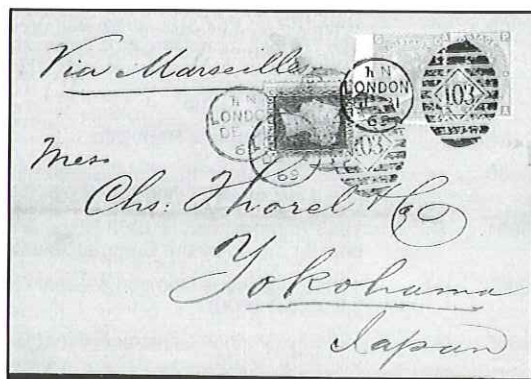 Via Marseilles
LONDON
103
LONDON
DE
69
103
69
Mess
Chs: Thorel & Co
Yokohama
Japan